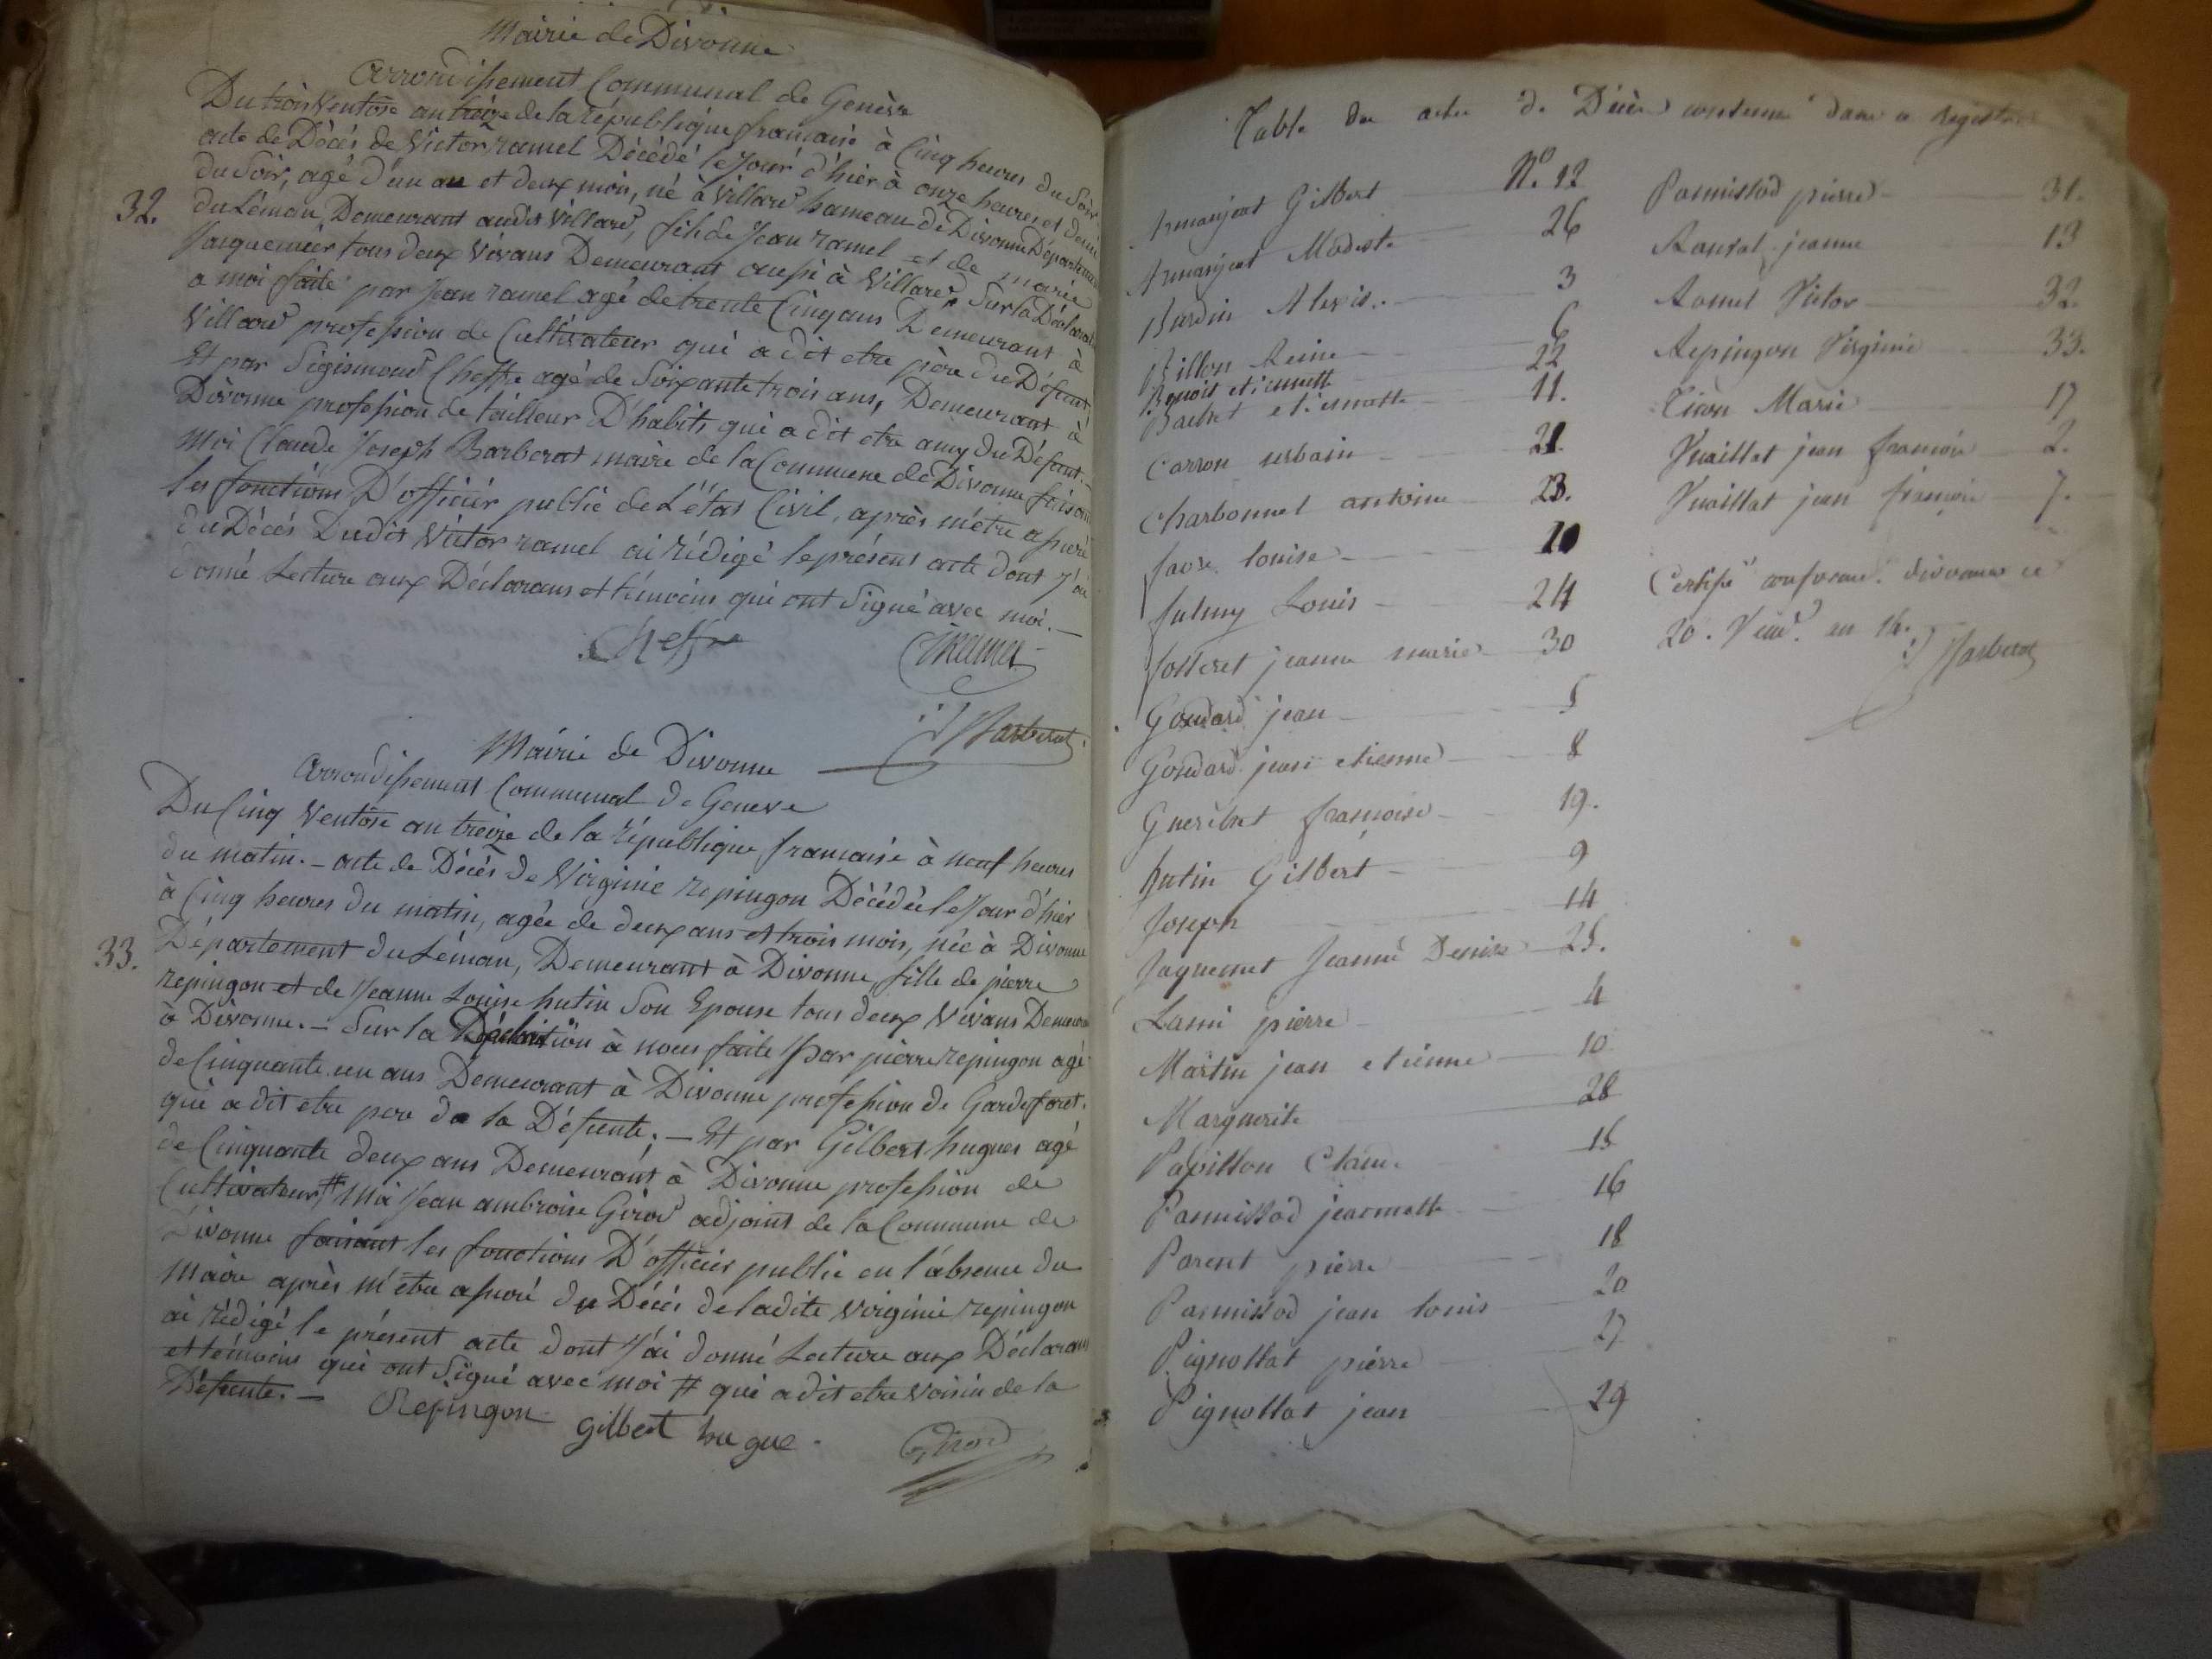 Mairie de Divonne
arrondissement Communal de Genève
Du trois Ventose an treize de la république francaise à Cinq heures du Soir
acte de Décés de Victor ramel Décédé le Jour d'hier à onze heures et demi
du Soir, agé d'un an et deux mois, né à Villard hameau de Divonne Département
32. du Léman, Demeurant audit Villard, fils de Jean ramel et de marie
Jaquemier tous deux Vivans Demeurant aussi à Villard, Sur la Déclaration
a moi faite par Jean ramel agé de trente Cinq ans Demeurant à
Villard profession de Cultivateur qui a dit etre père du Défunt,
Et par Sigismond Cheffre agé de Soixante trois ans, Demeurant à
Divonne profession de tailleur D'habits qui a dit etre amy du Défunt. —
Moi Claude Joseph Barberat maire de la Commune de Divonne faisant
les fonctions D'officier public de L'état Civil, après m'être assuré
du Décés Dudit Victor ramel ai rédigé le présent acte dont J'ai
donné Lecture aux Déclarans et témoins qui ont Signé avec moi. —
Barberat
Mairie de Divonne
arrondissement Communal de Geneve
Du Cinq Ventose an treize de la république francaise à neuf heures
du matin. — acte de Décés de Virginie repingon Décédée le Jour d'hier
à Cinq heures du matin, agée de deux ans et trois mois, née à Divonne
33. Département du Léman, Demeurant à Divonne, fille de pierre
repingon et de Jeanne Louise hutin Son Epouse tous deux Vivans Demeurant
à Divonne. — Sur la Déclaration à nous faite par pierre repingon agé
de Cinquante un ans Demeurant à Divonne profession de Garde foret.
qui a dit etre pere de la Défunte; — Et par Gilbert hugues agé
de Cinquante deux ans Demeurant à Divonne profession de
Cultivateur # Moi Jean ambroise Girod adjoint de la Commune de
Divonne faisant les fonctions D'officier public en l'absence du
Maire après m'etre assuré du Décés de ladite Virginie repingon
ai rédigé le présent acte dont J'ai donné Lecture aux Déclarans
et témoins qui ont Signé avec moi # qui a dit etre voisin de la
Défunte. —
Repingon
gilbert hugue
Girod
Table des actes de Décès contenus dans ce registre
Armanjeat Gilbert N.º 12
Armanjeat Modeste 26
Burdin Alexis. 3
Billon Reine 6
Benoit etiennette 22
Bachet etiennette 11.
Carron urbain 21.
Charbonnet antoine 23.
favre louise
fulmy Louis 24
fosseret jeanne marie 30
Goudard jean 5
Goudard jean etienne 8
Gueribet francoise 19.
hutin Gilbert 9
Joseph 14
Jaquemet Jeanne Denise 25.
Lami pierre 4
Martin jean etienne 10
Marguerite 28
Papillon Claude 15
Panissod jeannette 16
Parent pierre 18
Panissod jean louis 20
Pignollat pierre 27
Pignollat jean 29
Panissod pierre 31.
jeanne 13
Ramel Victor 32.
Repingon Virginie 33.
Marie 17
Vuaillat jean francois 2.
Vuaillat jean francois 7.
Certifié conforme. divonne ce
20. Vend.re an 14.
Barberat